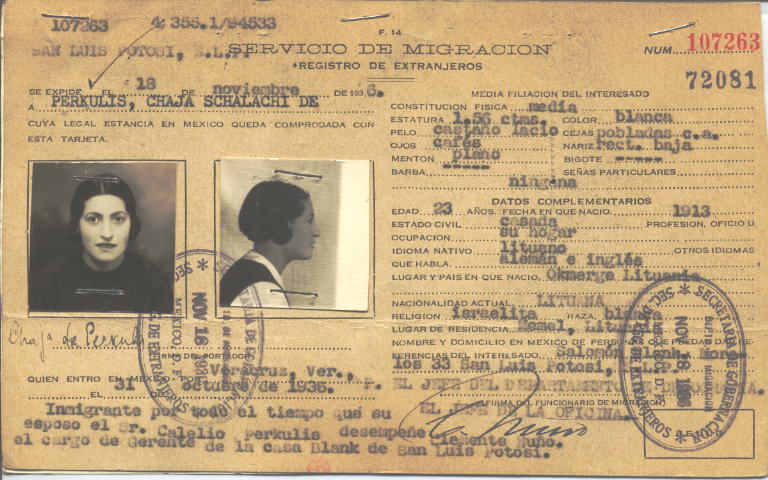 107263 4/355.1/94533
SAN LUIS POTOSI, S.L.P.
F. 14
SERVICIO DE MIGRACION
REGISTRO DE EXTRANJEROS
NUM. 107263
72081
SE EXPIDE EL 18 DE noviembre DE 1936.
A PERKULIS, CHAJA SCHALACHI DE
CUYA LEGAL ESTANCIA EN MEXICO QUEDA COMPROBADA CON
ESTA TARJETA.
FIRMA DEL PORTADOR
QUIEN ENTRO EN MEXICO POR Veracruz, Ver.,
EL 31 DE octubre de 1936. F.
Inmigrante por todo el tiempo que su
esposo el Sr. Calelio Perkulis desempeñe
el cargo de Gerente de la casa Blank de San Luis Potosí.
MEDIA FILIACION DEL INTERESADO
CONSTITUCION FISICA media
ESTATURA 1.56 ctms. COLOR blanca
PELO castaño lacio CEJAS pobladas c.a.
OJOS cafés NARIZ rect. baja
MENTON plano BIGOTE -----
BARBA ----- SEÑAS PARTICULARES
ninguna
DATOS COMPLEMENTARIOS
EDAD 23 AÑOS. FECHA EN QUE NACIO 1913
ESTADO CIVIL casada PROFESION, OFICIO U
OCUPACION su hogar
IDIOMA NATIVO lituano OTROS IDIOMAS
QUE HABLA alemán e inglés
LUGAR Y PAIS EN QUE NACIO Okmerge Lituania
NACIONALIDAD ACTUAL LITUANA
RELIGION israelita RAZA
LUGAR DE RESIDENCIA Memel,
NOMBRE Y DOMICILIO EN MEXICO DE PERSONAS QUE PUEDAN DAR RE-
FERENCIAS DEL INTERESADO. Salomón Blank
los 33 San Luis Potosí,
EL JEFE DEL DEPARTAMENTO
(FIRMA DEL FUNCIONARIO DE MIGRACION)
EL JEFE DE LA OFICINA.
Clemente Nuño.
SECRETARIA DE GOBERNACION
NOV 18 1936
MEXICO, D. F.
SEC. DE REG. DE EXTRANJEROS